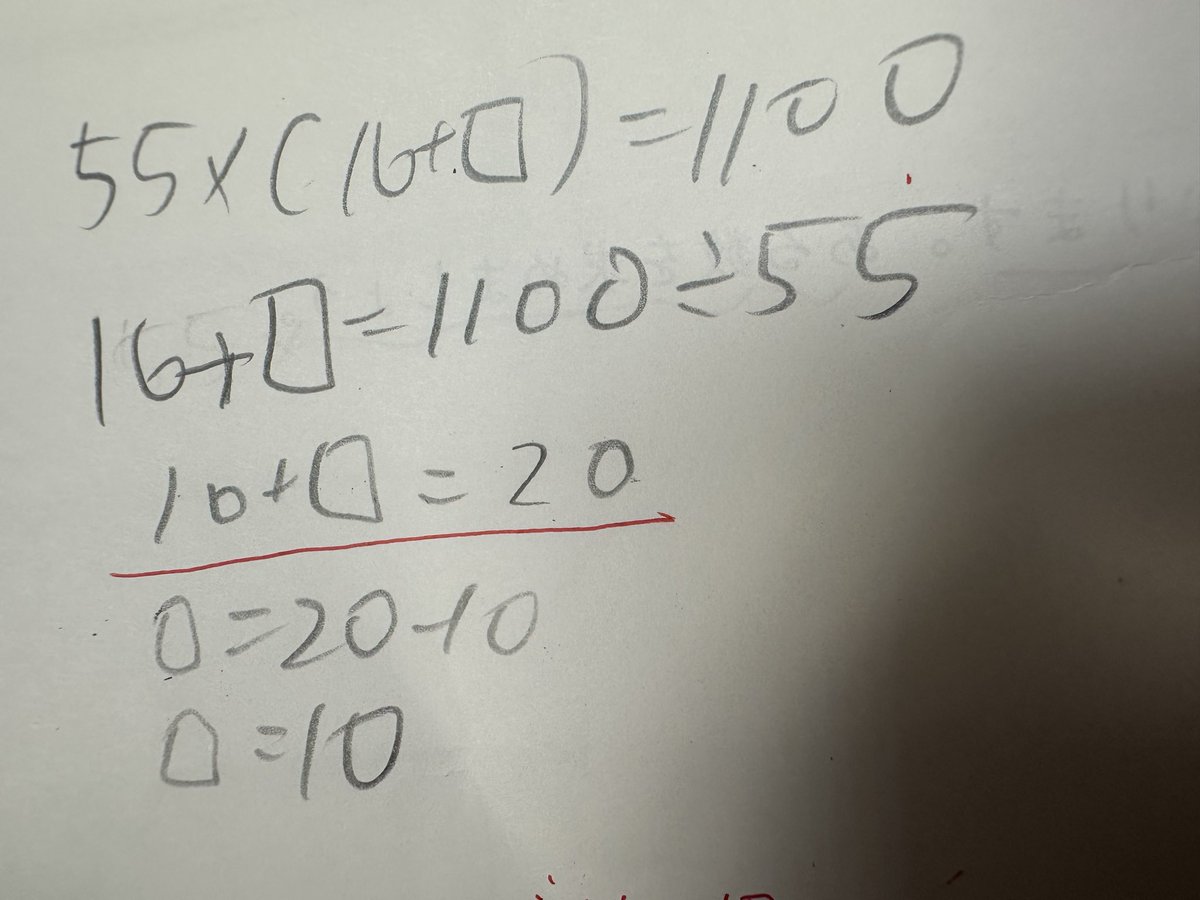 55×(16+□)=1100
16+□=1100÷55
10+□=20
□=20-10
□=10